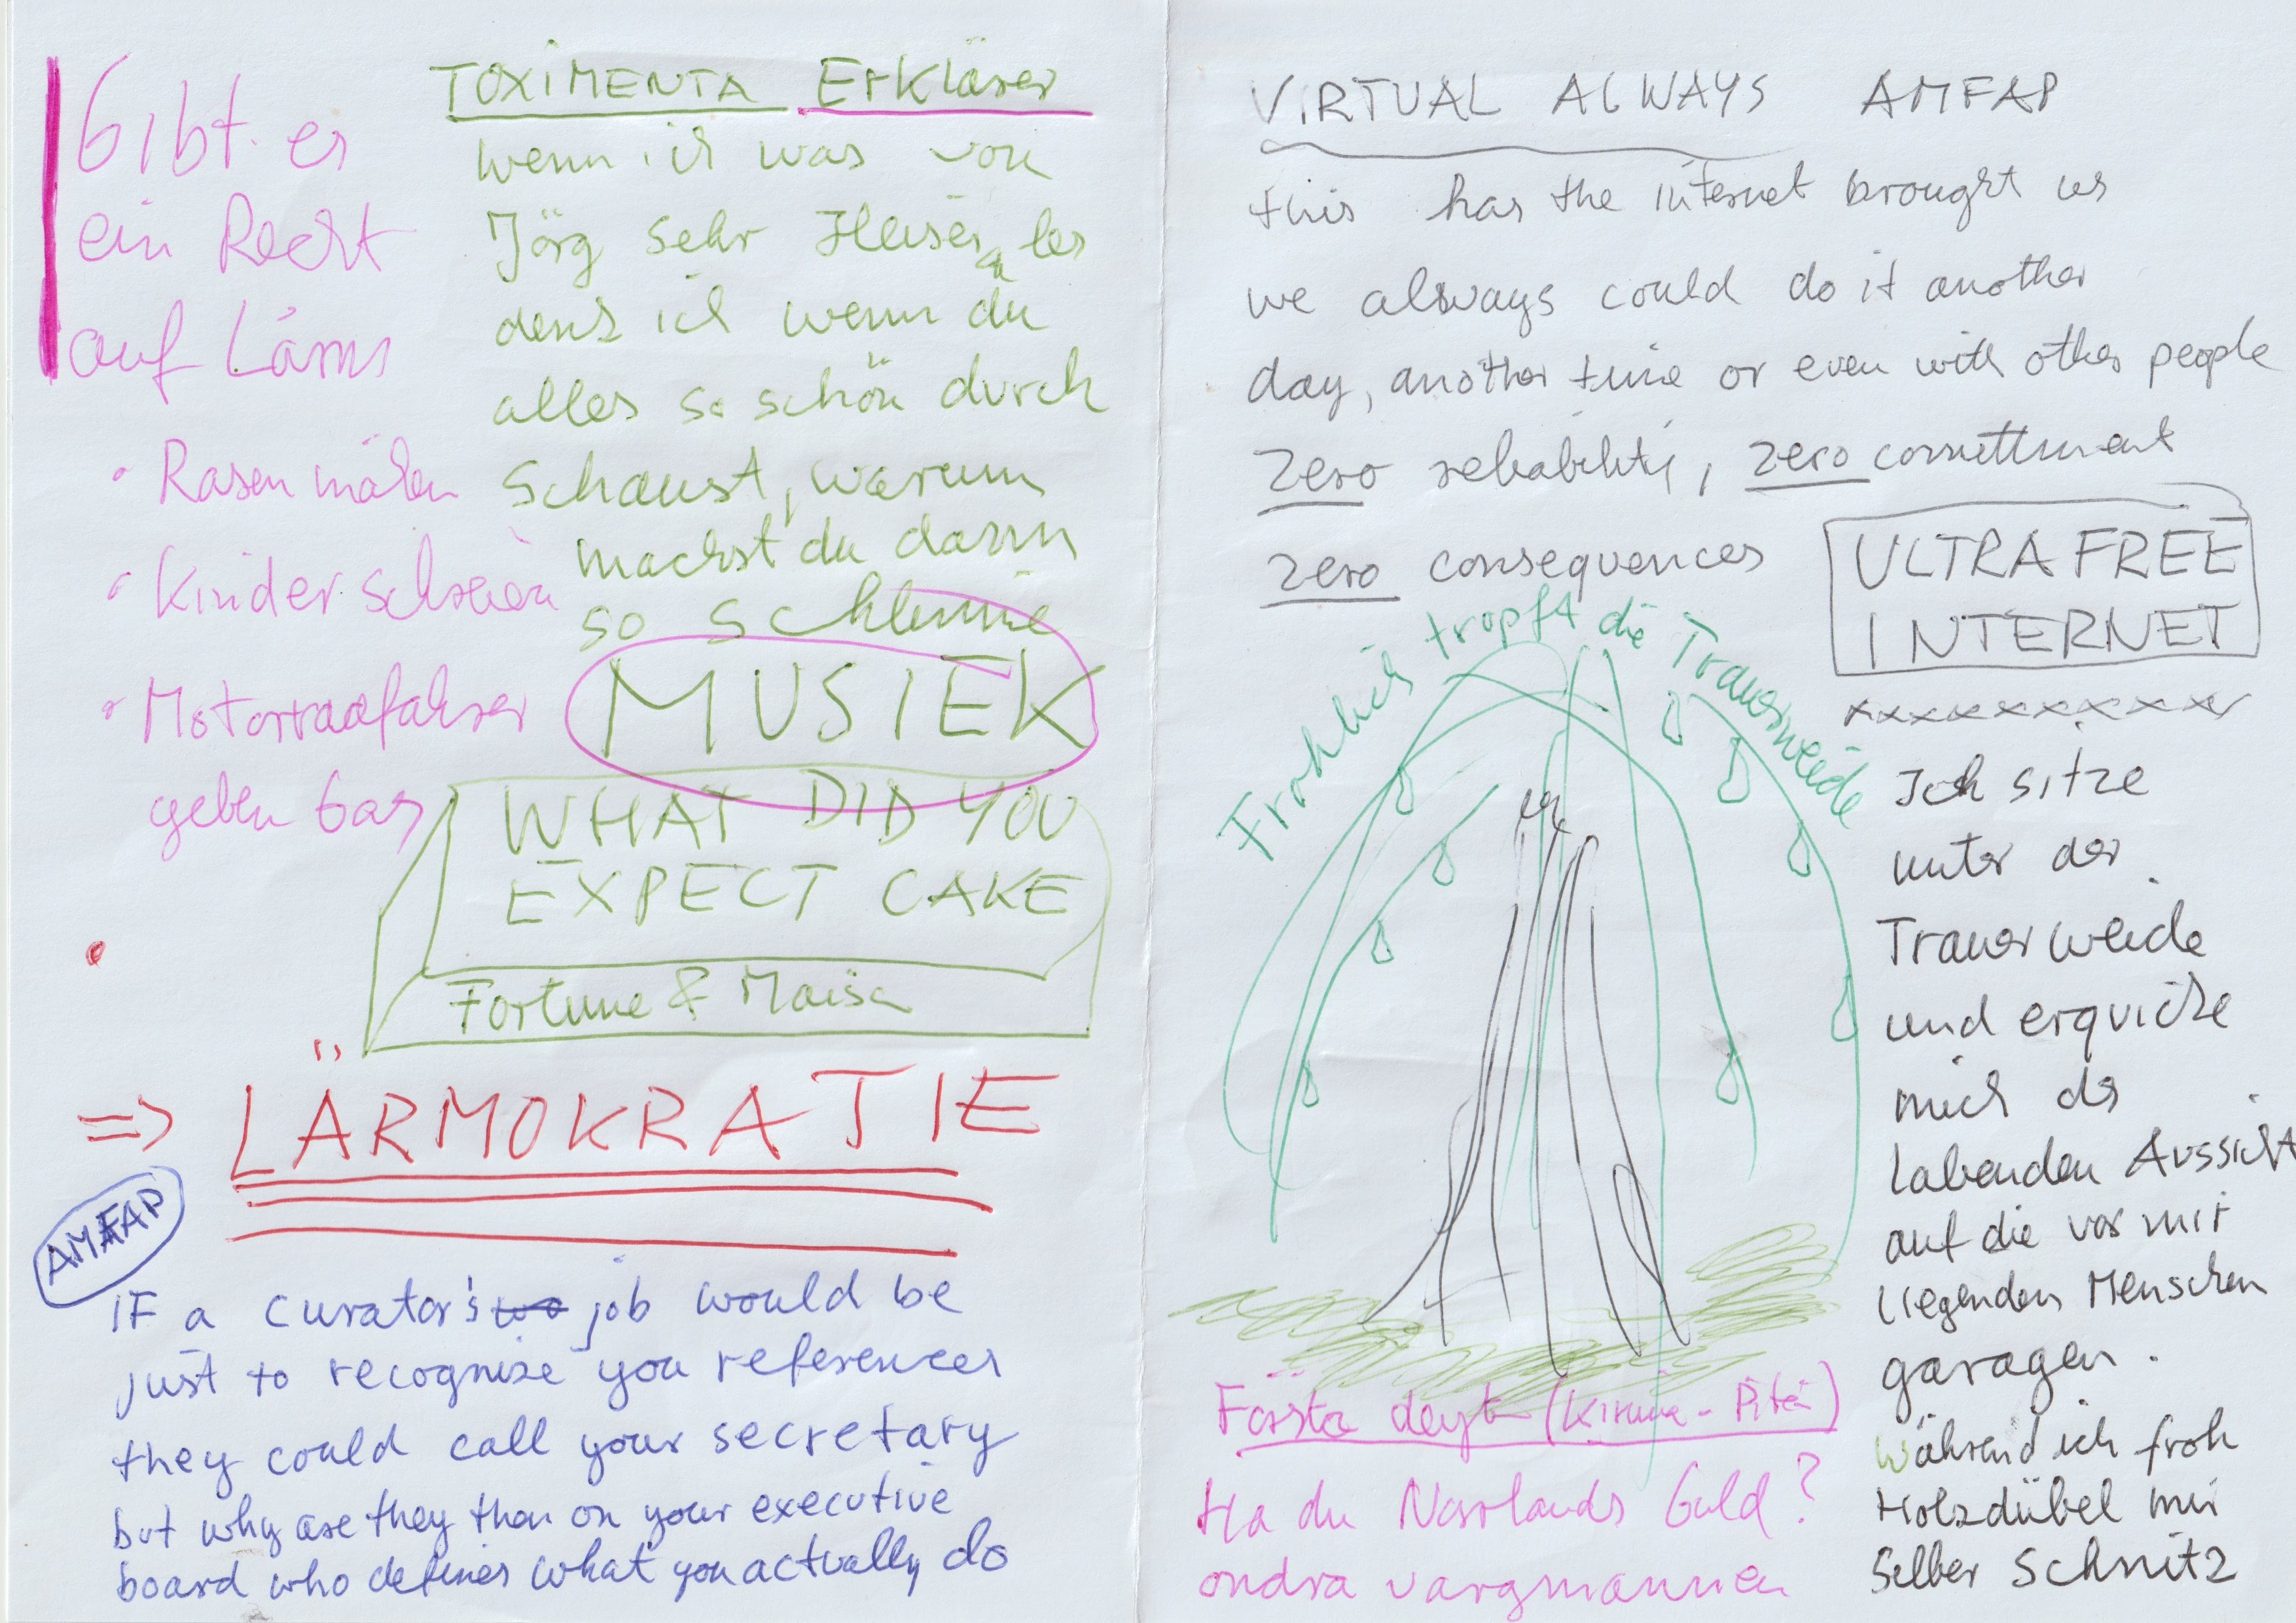 Gibt es
ein Recht
auf Lärm
• Rasen mähen
• Kinder schreien
• Motorradfahrer
geben Gas
TOXIMENTA Erklärer
wenn ich was von
Jörg sehr Heiser a les
denk ich wenn du
alles so schön durch
schaust, warum
machst du dann
so schlimme
MUSIEK
WHAT DID YOU
EXPECT CAKE
Fortune & Maisa
=> LÄRMOKRATIE
AMFAP
IF a curator's job would be
just to recognize you references
they could call your secretary
but why are they then on your executive
board who defines what you actually do
VIRTUAL ALWAYS AMFAP
this has the internet brought us
we always could do it another
day, another time or even with other people
zero reliability, zero comittment
zero consequences
ULTRA FREE
INTERNET
xxxxxxxxxx
Fröhlich tropft die Trauerweide
Ich sitze
unter der
Trauerweide
und erquicke
mich der
labenden Aussicht
auf die vor mir
liegenden Menschen
garagen.
während ich froh
Holzdübel mir
selber schnitz
Första (Kiruna - Piteå)
Ha du Norrlands Guld?
ondra vargmannen